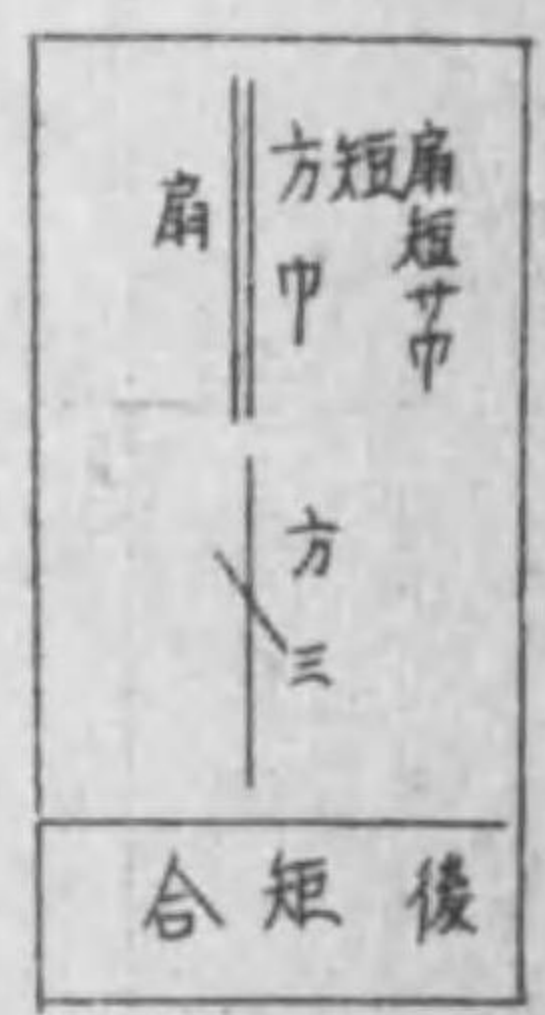 扇短サ巾
短
方巾
扇
方
三
後矩合